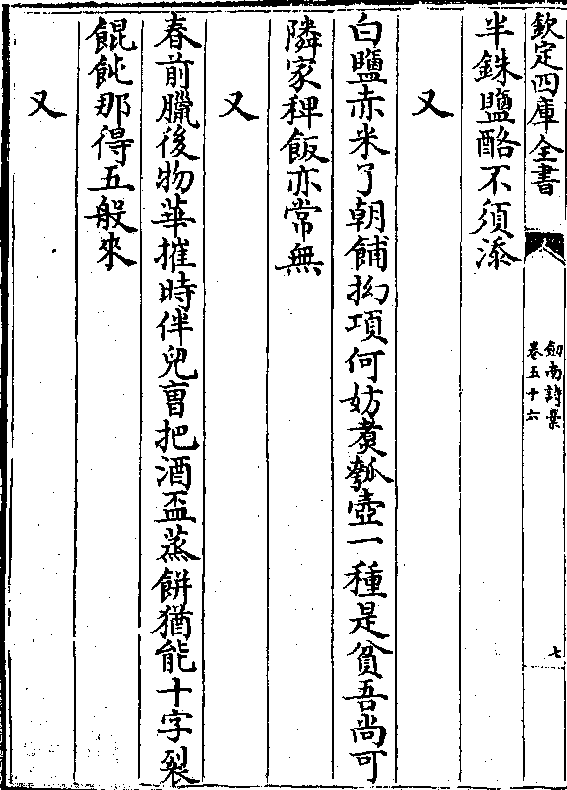 欽定四庫全書
劒南詩藁
卷五十六
七
半銖鹽酪不須添
又
白鹽赤米了朝餔拗項何妨煑瓠壺一種是貧吾尚可
隣家稗飯亦常無
又
春前臘後物華摧時伴兒曺把酒盃蒸餅猶能十字裂
餛飩那得五般來
又